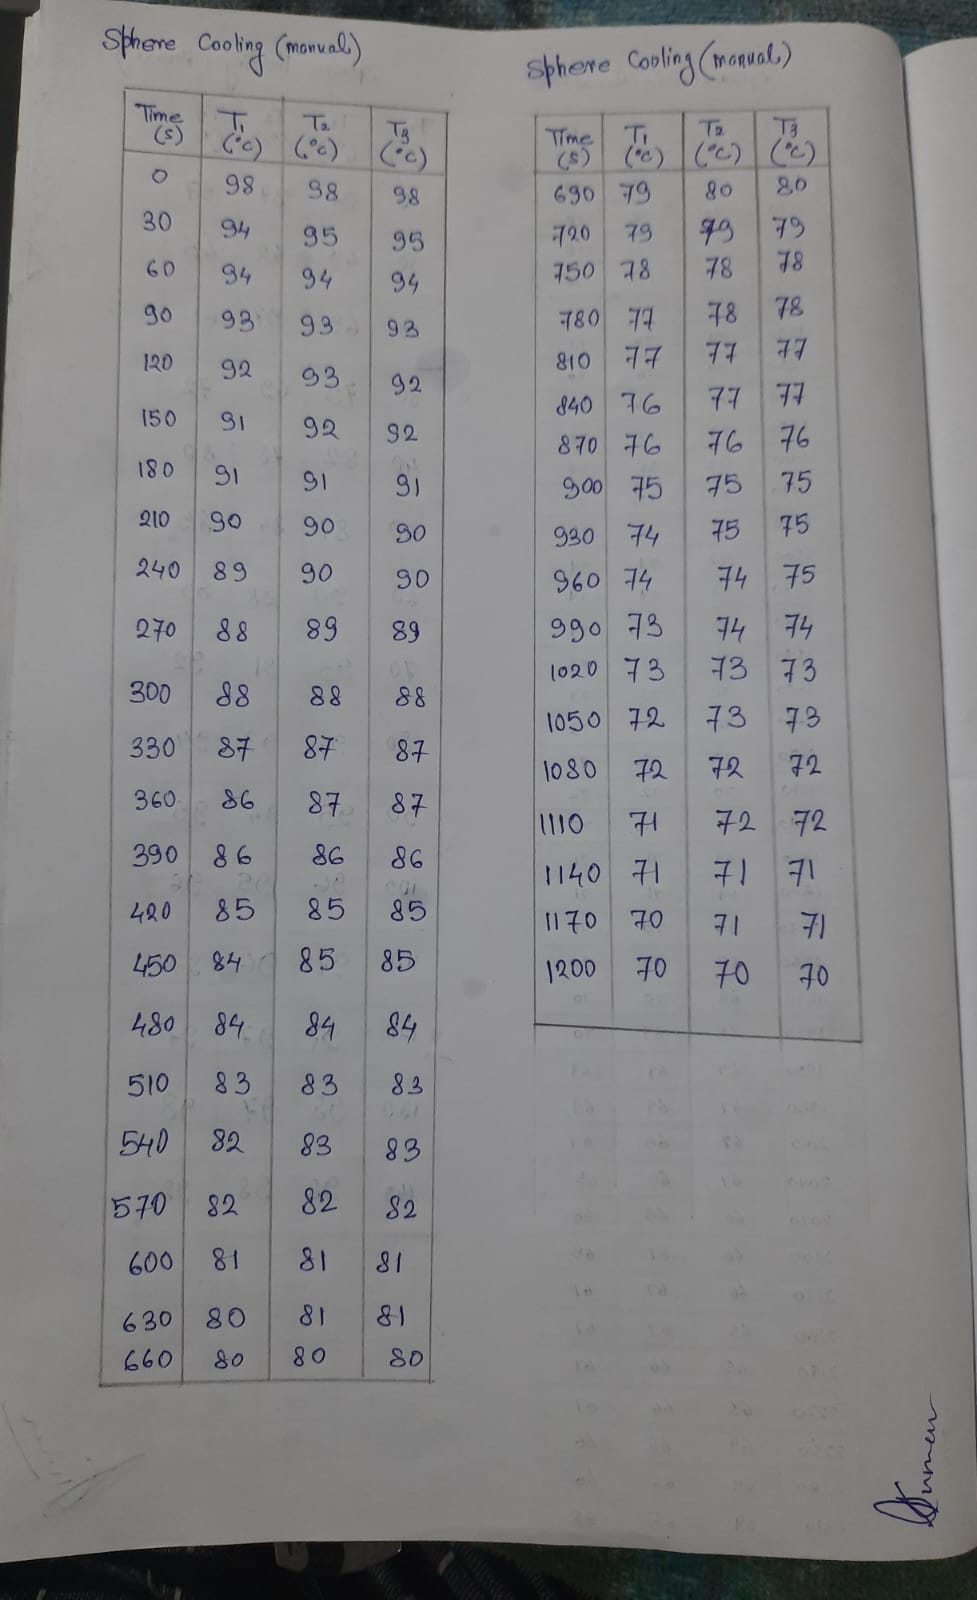 Sphere Cooling (manual)
Time (s) T1 (°C) T2 (°C) T3 (°C)
0 98 98 98
30 94 95 95
60 94 94 94
90 93 93 93
120 92 93 92
150 91 92 92
180 91 91 91
210 90 90 90
240 89 90 90
270 88 89 89
300 88 88 88
330 87 87 87
360 86 87 87
390 86 86 86
420 85 85 85
450 84 85 85
480 84 84 84
510 83 83 83
540 82 83 83
570 82 82 82
600 81 81 81
630 80 81 81
660 80 80 80
Sphere Cooling (manual)
Time (s) T1 (°C) T2 (°C) T3 (°C)
690 79 80 80
720 79 79 79
750 78 78 78
780 77 78 78
810 77 77 77
840 76 77 77
870 76 76 76
900 75 75 75
930 74 75 75
960 74 74 75
990 73 74 74
1020 73 73 73
1050 72 73 73
1080 72 72 72
1110 71 72 72
1140 71 71 71
1170 70 71 71
1200 70 70 70